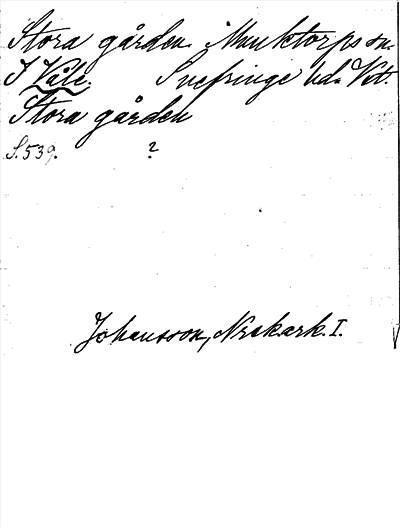 Stora gården. Munktorps sn.
I Våle. Snefringe hd. Vst.
Stora gården
S. 539. ?
Johansson, Norak.ark. I.